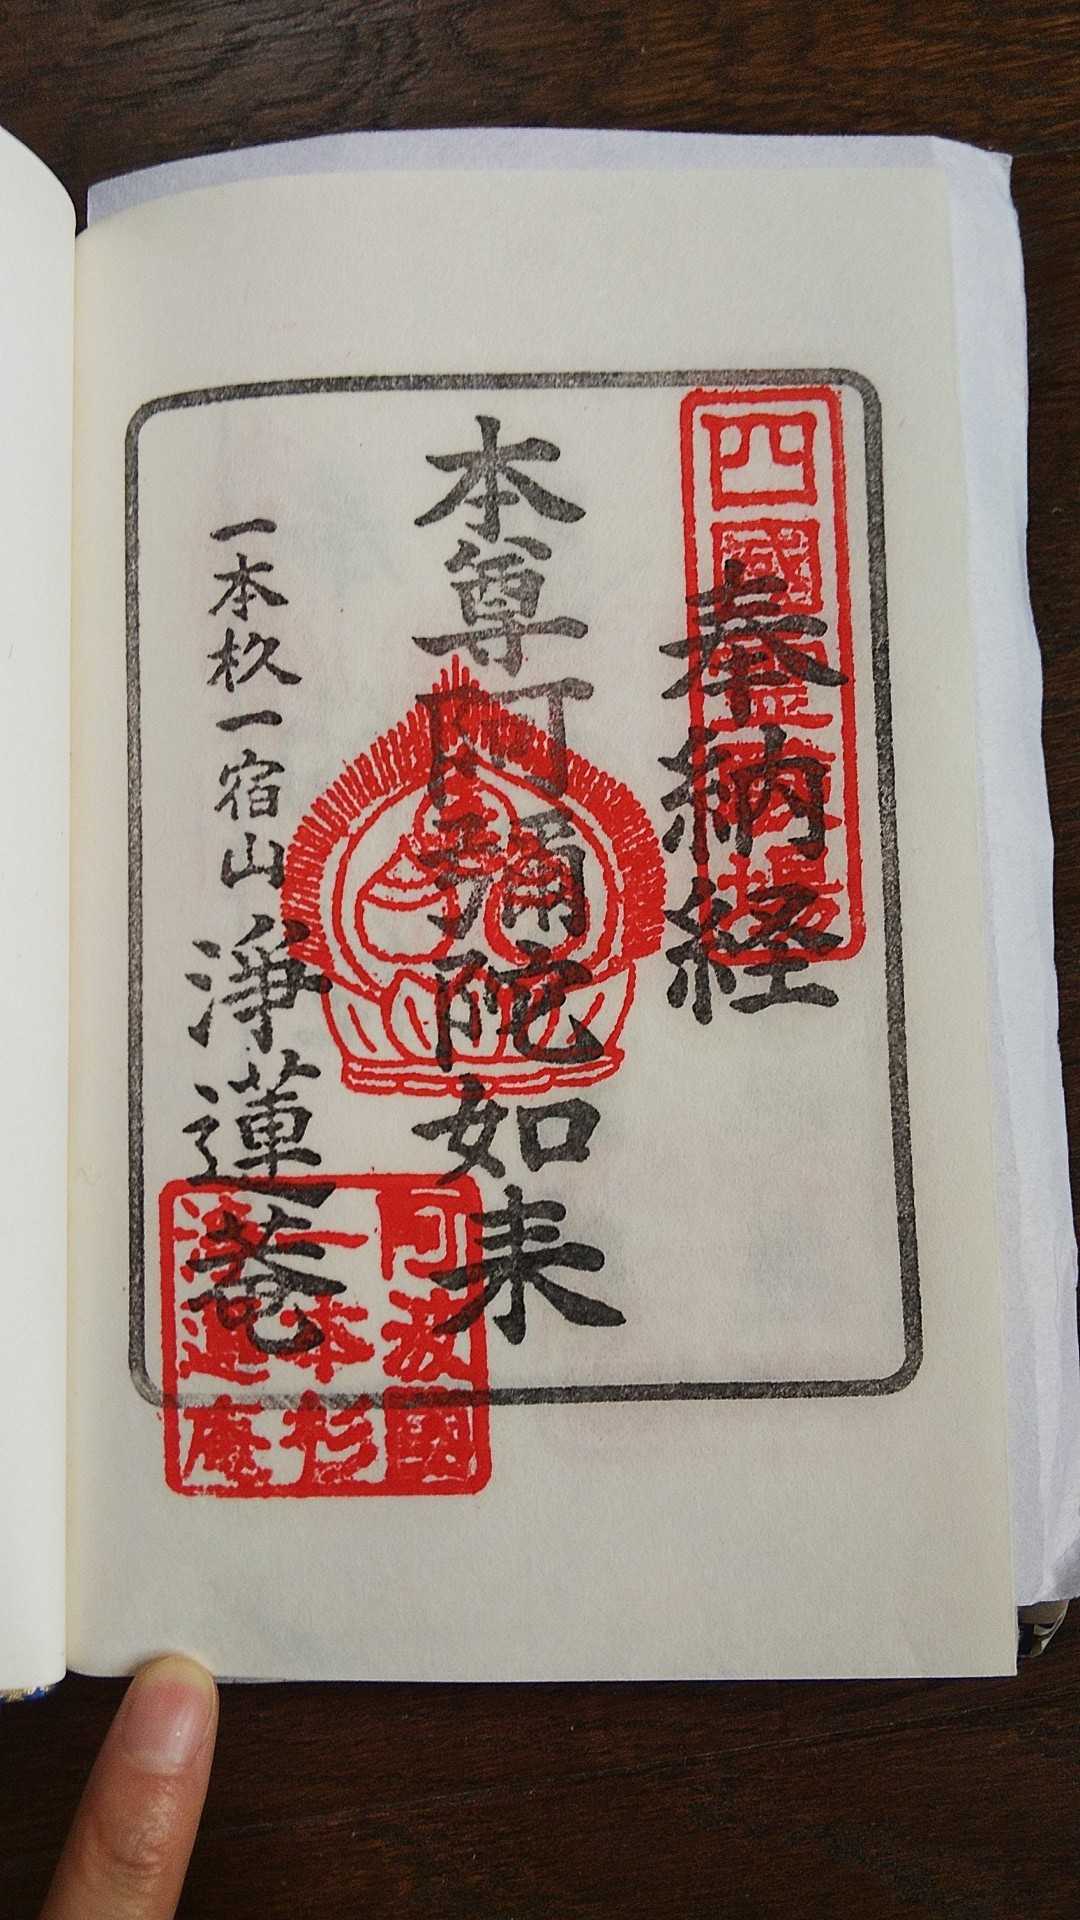 四國霊蹟場
奉納経
本尊阿弥陀如来
一本杦一宿山
淨蓮菴
阿波國
一本杉
淨蓮庵